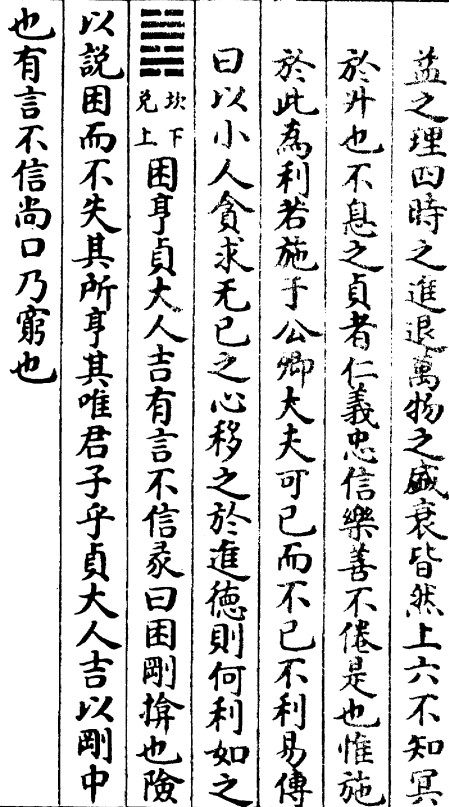 益之理四時之進退萬物之盛衰皆然上六不知冥
於升也不息之貞者仁義忠信樂善不倦是也惟施
於此為利若施于公卿大夫可已而不已不利易傳
曰以小人貪求无已之心移之於進德則何利如之
䷮坎下兌上困亨貞大人吉有言不信彖曰困剛揜也險
以説困而不失其所亨其唯君子乎貞大人吉以剛中
也有言不信尚口乃窮也